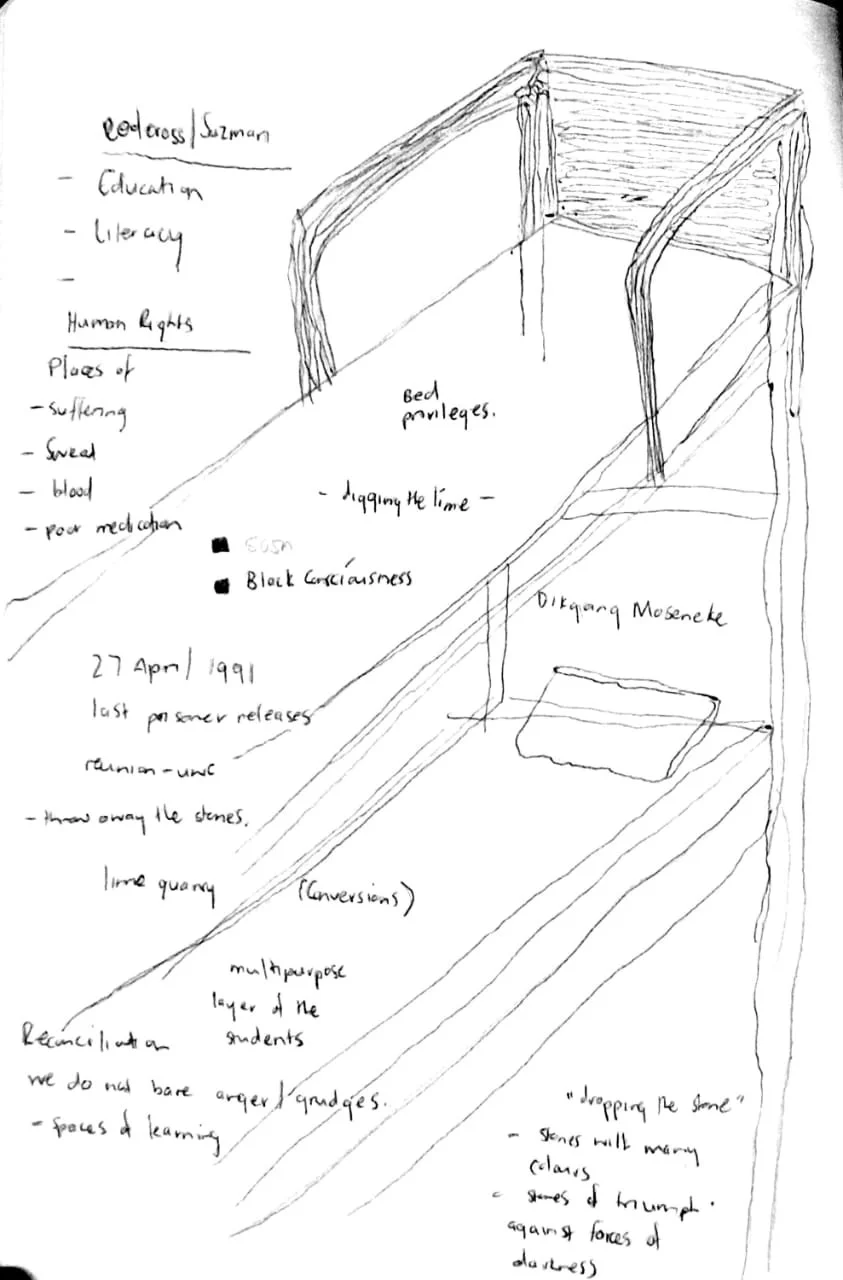 Redcross/Suzman
- Education
- Literacy
-
Human Rights
Places of
- suffering
- Sweat
- blood
- poor medication
Bed
privileges.
- digging the lime -
Black Consciousness
Dikgang Moseneke
27 April 1991
last prisoner releases
reunion - UWC
- throw away the stones.
lime quarry
(Conversions)
multipurpose
layer of the
students
Reconciliation
we do not bare anger/grudges.
- spaces of learning
"dropping the stone"
- stones with many
colours
- stones of triumph
against forces of
darkness